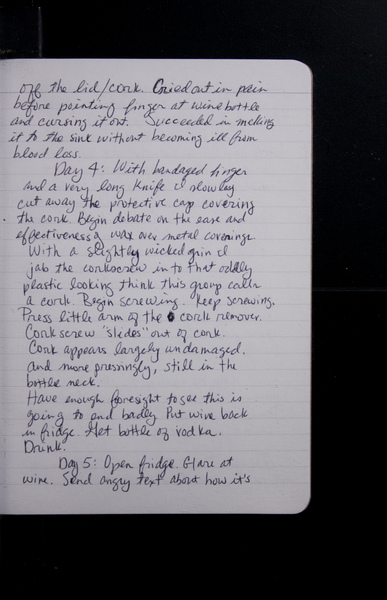 off the lid/cork. Cried out in pain
before pointing finger at wine bottle
and cursing it out. Succeeded in making
it to the sink without becoming ill from
blood loss.
Day 4: With bandaged finger
and a very long knife I slowley
cut away the protective cap covering
the cork. Begin debate on the ease and
effectiveness of wax over metal coverings.
With a slightly wicked grin I
jab the corkscrew in to that oddly
plastic looking think this group calls
a cork. Begin screwing. Keep screwing.
Press little arm of the cork remover.
Corkscrew "slides" out of cork.
Cork appears largely undamaged,
and more pressingly, still in the
bottle neck.
Have enough foresight to see this is
going to end badly. Put wine back
in fridge. Get bottle of vodka.
Drunk.
Day 5: Open fridge. Glare at
wine. Send angry text about how it's